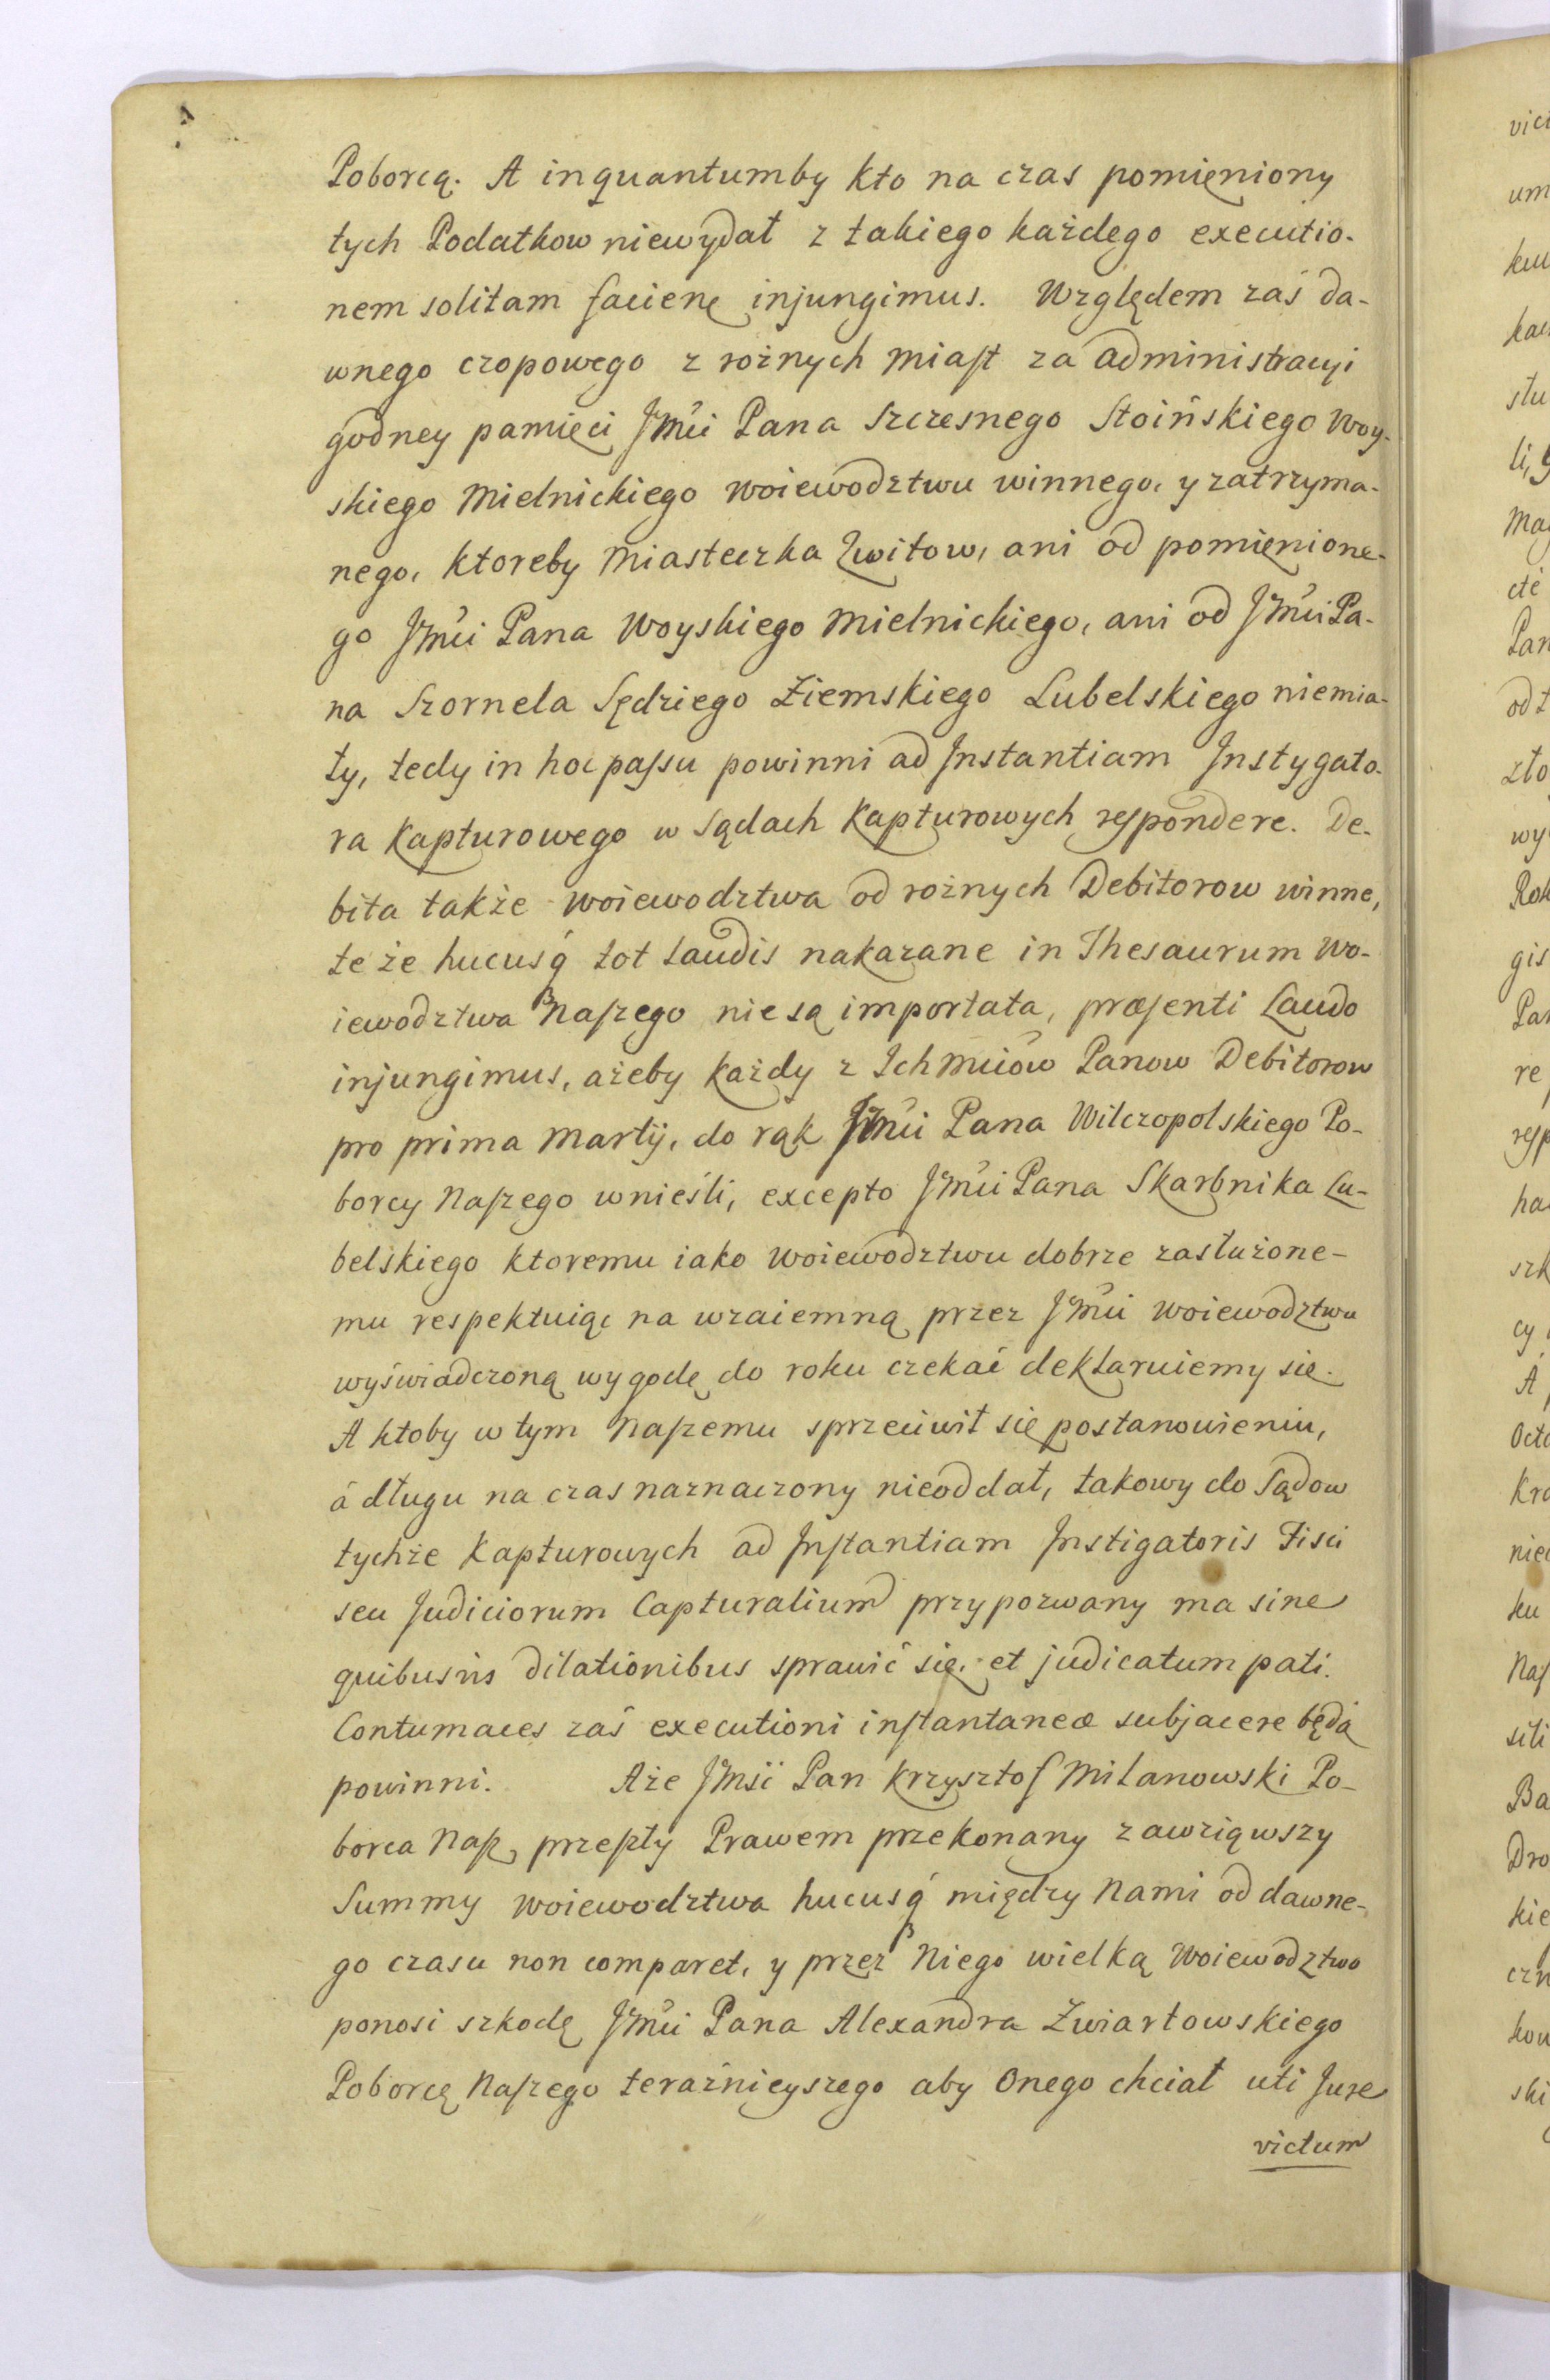 Poborcą. A inquantumby kto na czas pomięniony
tych Podatkow niewydał z takiego każdego executio-
nem solitam facienę injungimus. Względem zaś da-
wnego czopowego z rożnych Miaſt za administracyi
godney pamięci Jmći Pana Szczesnego Stoińskiego Woy-
skiego Mielnickiego Woiewodztwu winnego, y zatrzyma-
nego, ktoreby Miasteczka Kwitow, ani od pomięnione-
go Jmći Pana Woyskiego Mielnickiego, ani od Jmći Pa-
na Szornela Sędziego Ziemskiego Lubelskiego niemia-
ły, tedy in hoc paſsu powinni ad Instantiam Instygato-
ra Kapturowego w Sądach Kapturowych reſpondere. De-
bita także Woiewodztwa od rożnych Debitorow winne,
te że hucusq́ tot Laudis nakazane in Thesaurum Wo-
iewodztwa Naſzego nie są importata, præſenti Laudo
injungimus, ażeby każdy z Ichmćiow Panow Debitorow
pro prima Martij, do rąk Jmći Pana Wilczopolskiego Po-
borcy Naſzego wnieśli, excepto Jmći Pana Skarbnika Lu-
belskiego ktoremu iako Woiewodztwu dobrze zasłużone-
mu respektuiąc na wzaiemną przez Jmći Woiewodztwu
wyświadczoną wygodę do roku czekać deklaruiemy się.
A ktoby w tym Naſzemu sprzeciwił się postanowieniu,
á długu na czas naznaczony nieoddał, takowy do Sądow
tychże Kapturowych ad Inſtantiam Instigatoris Fisci
seu Judiciorum Capturalium przypozwany ma sine
quibusvis dilationibus sprawić się, et judicatum pati.
Contumaces zaś executioni inſtantaneæ subjacere będą
powinni. Aże Jmść Pan Krzysztof Milanowski Po-
borca Naſz przeſzły Prawem przekonany zawziąwszy
Summy Woiewodztwa hucusq́ między Nami od dawne-
go czasu non comparet, y przez Niego wielką Woiewodztwo
ponosi szkodę Jmći Pana Alexandra Zwiartowskiego
Poborcę Naſzego teraźnieyszego aby Onego chciał uti Jure
victum